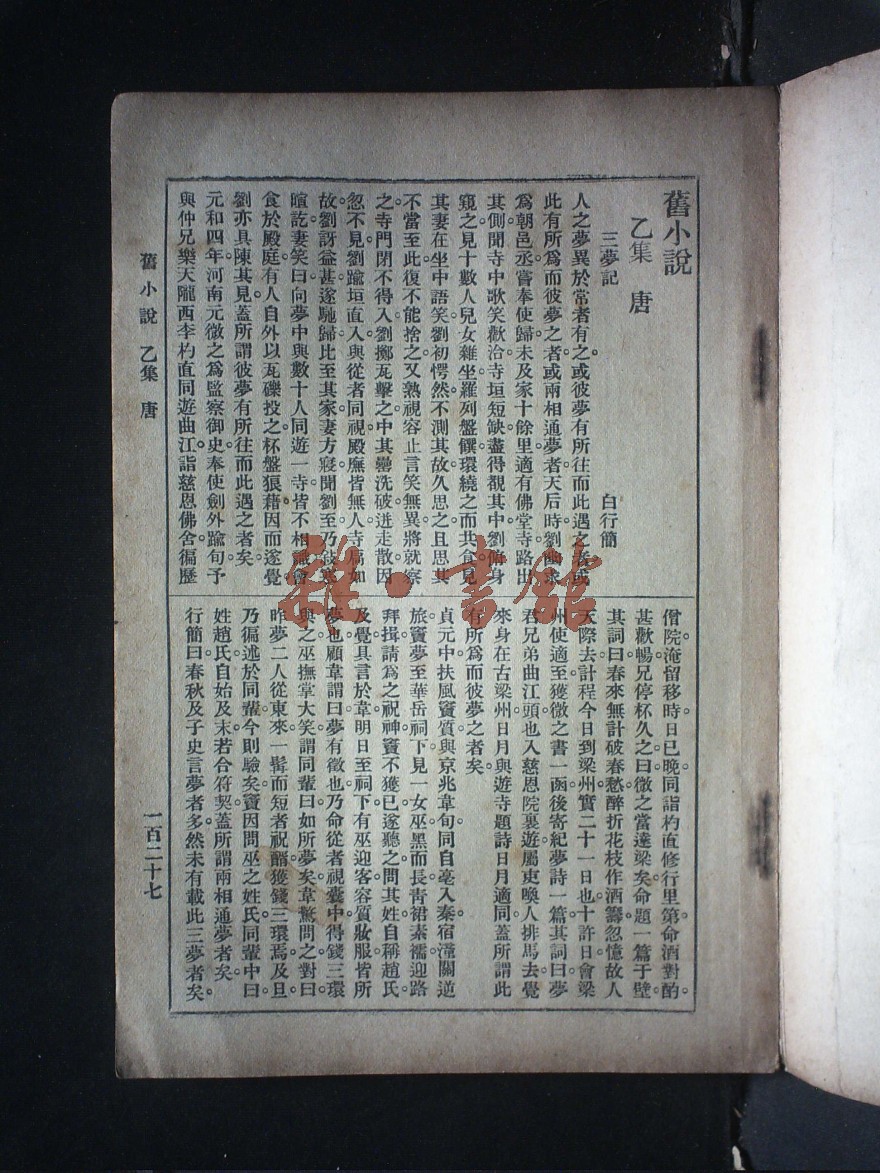 舊小說
乙集 唐
三夢記 白行簡
人之夢異於常者有之。或彼夢有所往而此遇之者或
此有所爲而彼夢之者或兩相通夢者天后時劉幽求
爲朝邑丞嘗奉使歸未及家十餘里適有佛堂寺路出
其側聞寺中歌笑歡洽寺垣短缺盡得覩其中劉俯身
窺之見十數人兒女雜坐羅列盤饌環繞之而共食見
其妻在坐中語笑劉初愕然不測其故久思之且思其
不當至此復不能捨之又熟視容止言笑無異將就察
之寺門閉不得入劉擲瓦擊之中其罍洗破迸走散因
忽不見劉踰垣直入與從者同視殿廡皆無人寺扃如
故劉訝益甚遂馳歸比至其家妻方寢聞劉至乃敍寒
暄訖妻笑曰向夢中與數十人同遊一寺皆不相識會
食於殿庭有人自外以瓦礫投之杯盤狼藉因而遂覺
劉亦具陳其見蓋所謂彼夢有所往而此遇之者矣
元和四年河南元微之爲監察御史奉使劍外踰旬予
與仲兄樂天隴西李杓直同遊曲江。詣慈恩佛舍徧歷
僧院淹留移時日已晚同詣杓直修行里第命酒對酌。
甚歡暢兄停杯久之曰微之當達梁矣命題一篇于壁
其詞曰春來無計破春愁醉折花枝作酒籌忽憶故人
天際去計程今日到梁州實二十一日也十許日會梁
州使適至獲微之書一函後寄紀夢詩一篇其詞曰夢
君兄弟曲江頭也入慈恩院裏遊屬吏喚人排馬去覺
來身在古梁州日月與遊寺題詩日月適同蓋所謂此
有所爲而彼夢之者矣。
貞元中扶風竇質與京兆韋旬同自亳入秦宿潼關逆
旅竇夢至華岳祠下見一女巫黑而長靑裙素襦迎路
拜揖請爲之祝神竇不獲已遂聽之問其姓自稱趙氏
及覺具言於韋明日至祠下有巫迎客容質妝服皆所
夢也顧韋謂曰夢有徵也乃命從者視囊中得錢三環
與之巫撫掌大笑謂同輩曰如所夢矣韋驚問之對曰
昨夢二人從東來一髯而短者祝醑獲錢三環焉及旦
乃徧述於同輩今則驗矣竇因問巫之姓氏同輩中曰
姓趙氏自始及末若合符契蓋所謂兩相通夢者矣
行簡曰春秋及子史言夢者多然未有載此三夢者矣。
舊小說 乙集 唐
一百二十七
雜·書館